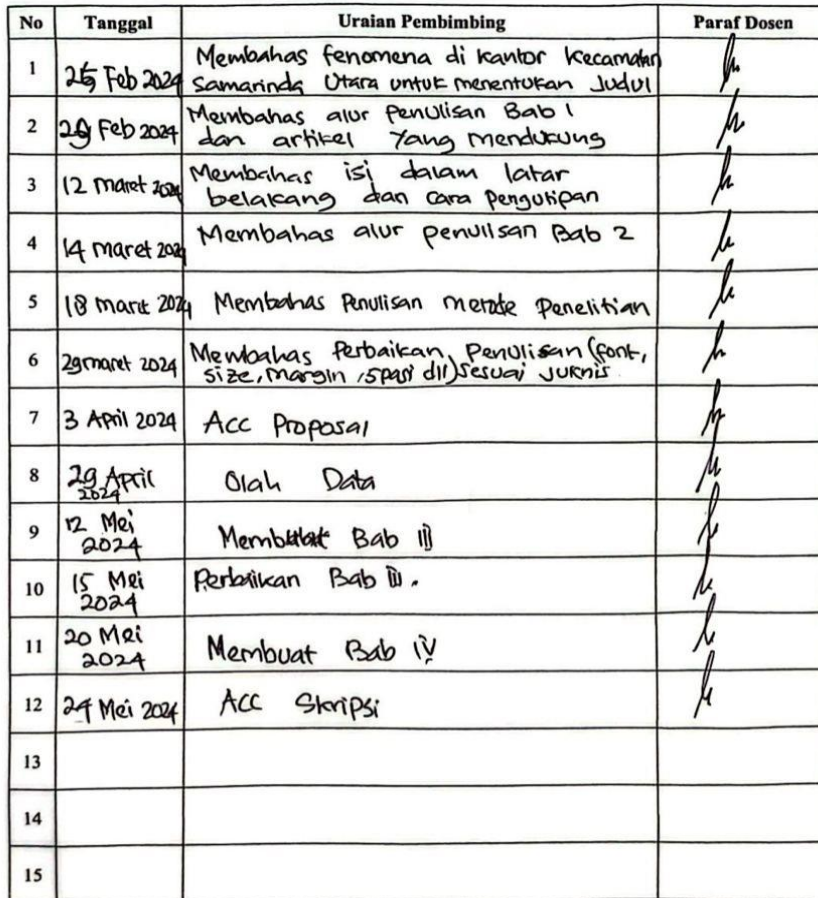 No Tanggal Uraian Pembimbing Paraf Dosen
1 Feb 2024 Membahas fenomena di kantor Kecamatan
Samarinda Utara untuk menentukan Judul
2 29 Feb 2024 Membahas alur Penulisan Bab 1
dan artikel Yang mendukung
3 12 maret 2024 Membahas isi dalam latar
belakang dan cara Pengutipan
4 14 maret 2024 Membahas alur penulisan Bab 2
5 18 maret 2024 Membahas Penulisan metode Penelitian
6 29 maret 2024 Membahas Perbaikan Penulisan (font,
size, margin, spasi dll) sesuai Juknis
7 3 April 2024 Acc Proposal
8 29 April
2024 Olah Data
9 12 Mei
2024 Membuat Bab III
10 15 Mei
2024 Perbaikan Bab III.
11 20 Mei
2024 Membuat Bab IV
12 24 Mei 2024 ACC Skripsi
13
14
15